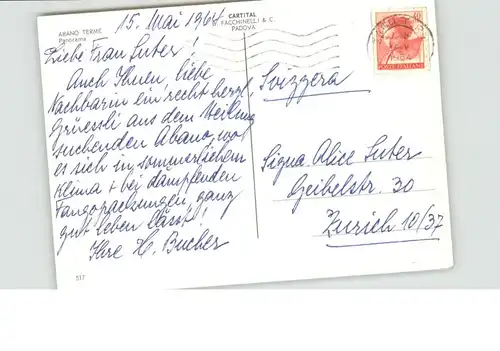 15. Mai 1964
ABANO TERME
Panorama
CARTITAL
FACCHINELLI & C.
PADOVA
Liebe Frau Suter!
Auch Ihnen, liebe
Nachbarin ein recht herzl.
Grüessli aus dem Heilung
suchenden Abano, wo
es sich in sommerlichem
Klima + bei dampfenden
Fangopackungen, ganz
gut leben lässt!
Ihre H. Bucher
517
POSTE ITALIANE
Svizzera
Signa Alice Suter
Geibelstr. 30
Zürich 10/37